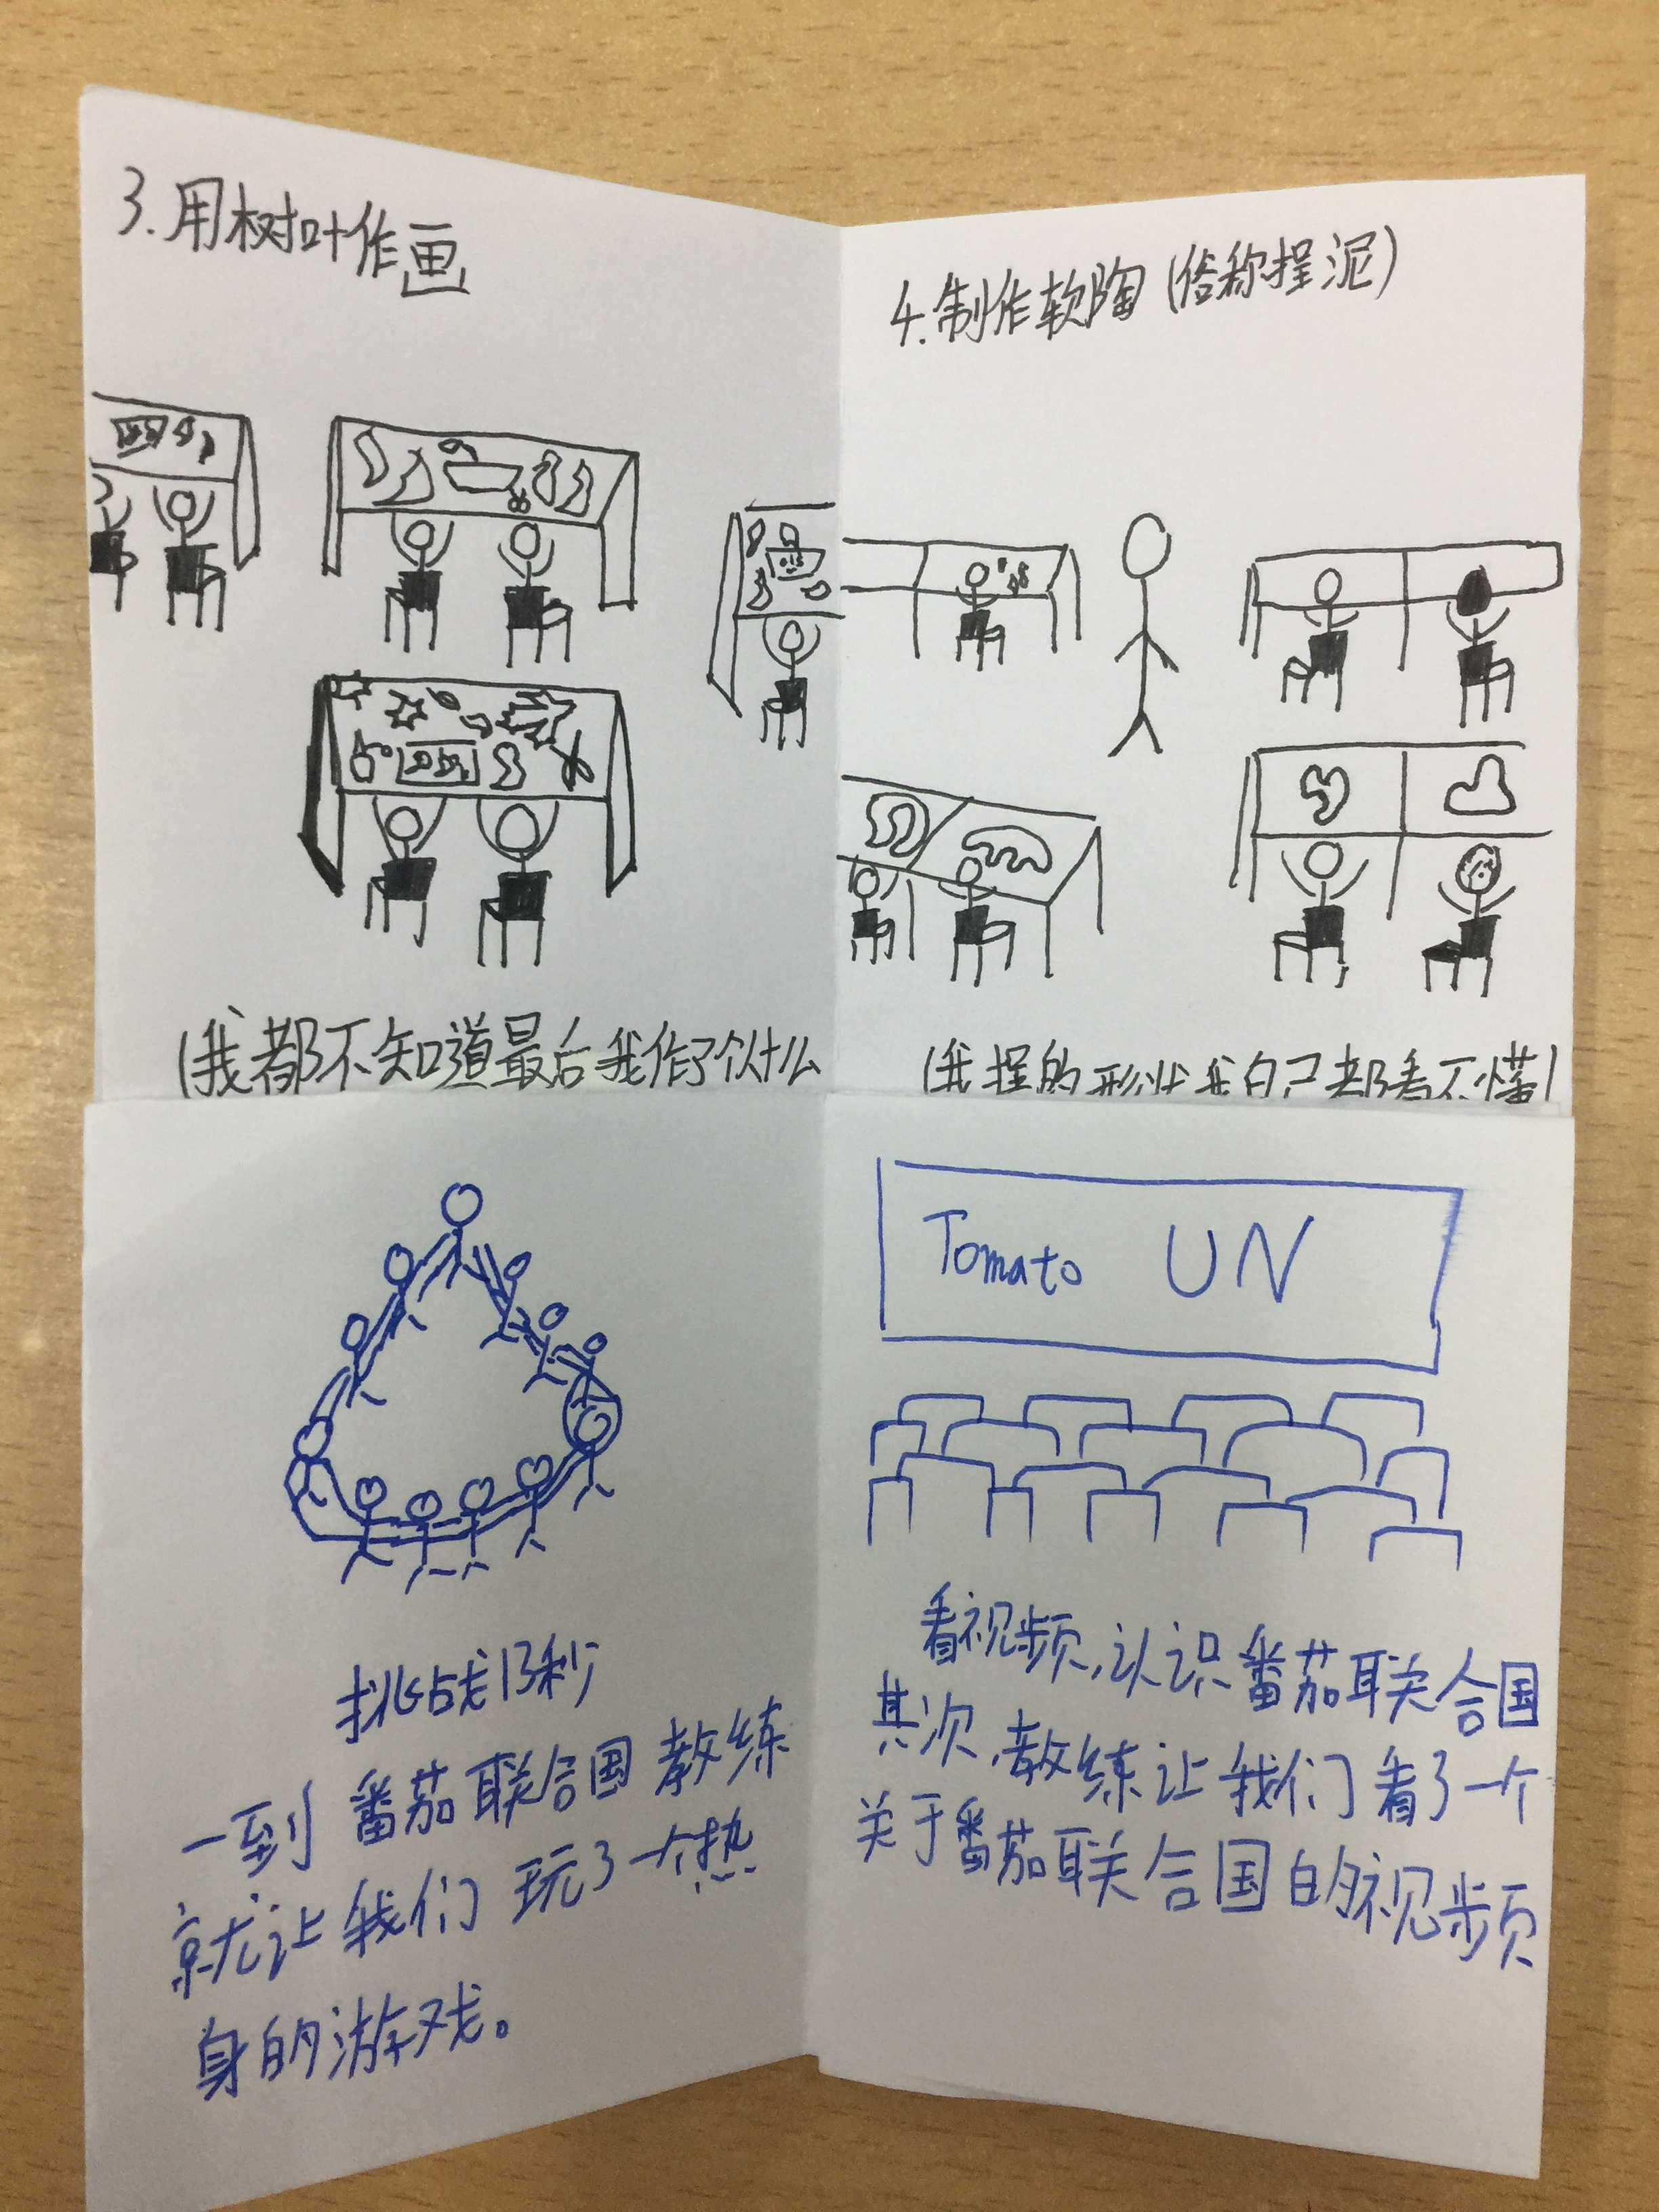 3.用树叶作画
(我都不知道最后我作了个什么
4.制作软陶(俗称捏泥)
(我捏的形状我自己都看不懂)
挑战13秒
一到番茄联合国教练
就让我们玩了一个热
身的游戏。
Tomato UN
看视频,认识番茄联合国
其次,教练让我们看了一个
关于番茄联合国的视频